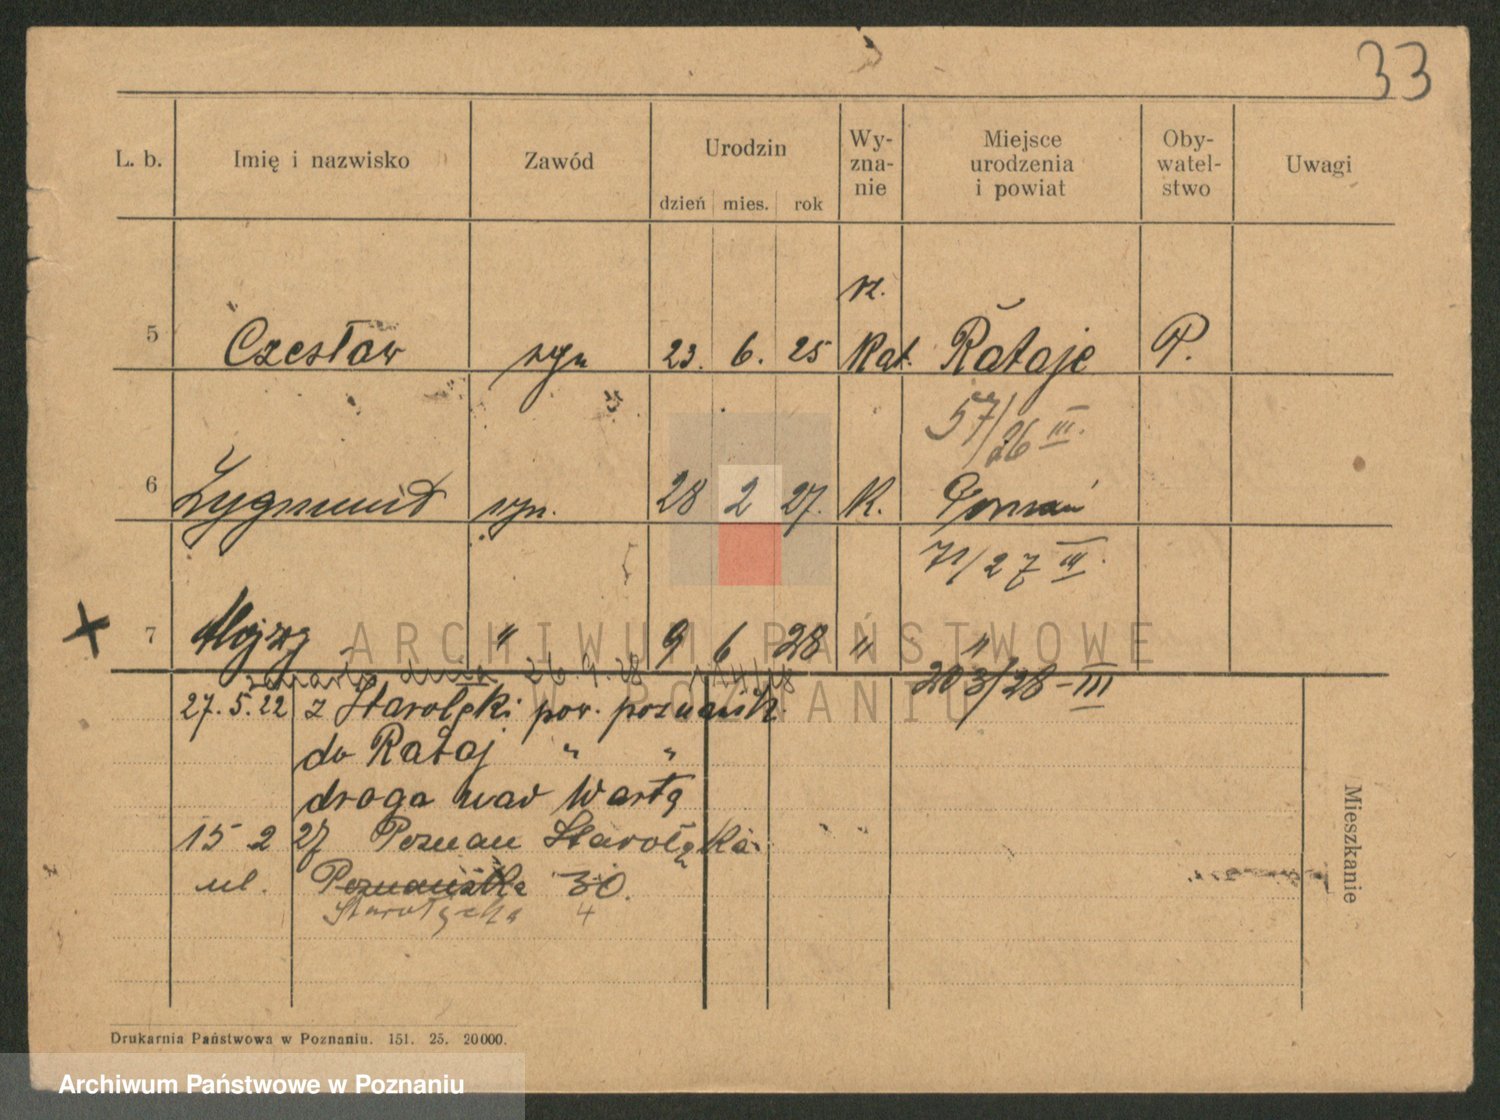 33
L. b. Imię i nazwisko Zawód Urodzin dzień mies. rok Wy-zna-nie Miejsce urodzenia i powiat Oby-watel-stwo Uwagi
rz.
5 Czesław syn 23. 6. 25 Kat. Rataje P.
57/26 III.
6 Zygmund syn. 28 2 27. K. Poznań
71/27 III.
7 Alojzy " 9 6 28 " "
zmarły dnia 26.9.28
203/28-III
27.5.22 z Starołęki pow. poznańsk.
do Rataj " "
droga nad Wartą
15 2 27 Poznan Starołęka
ul. Poznańska 30.
Starołęcka 4
Mieszkanie
Drukarnia Państwowa w Poznaniu. 151. 25. 20000.
ARCHIWUM PAŃSTWOWE
W POZNANIU
Archiwum Państwowe w Poznaniu